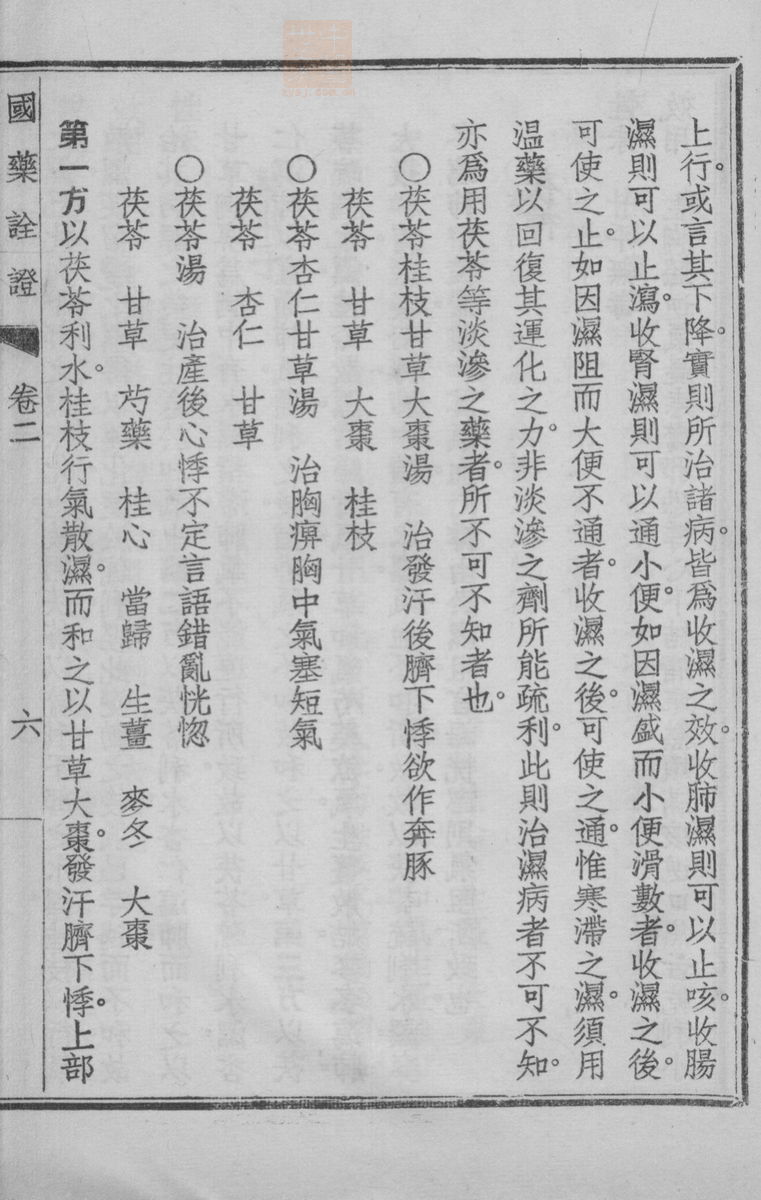 上行。或言其下降。實則所治諸病。皆爲收濕之效。收肺濕則可以止咳。收腸
濕則可以止瀉。收腎濕則可以通小便。如因濕盛而小便滑數者。收濕之後。
可使之止。如因濕阻而大便不通者。收濕之後。可使之通。惟寒滯之濕。須用
温藥以回復其運化之力。非淡滲之劑所能疏利。此則治濕病者不可不知。
亦爲用茯苓等淡滲之藥者。所不可不知者也。
○茯苓桂枝甘草大棗湯　治發汗後臍下悸欲作奔豚
茯苓　甘草　大棗　桂枝
○茯苓杏仁甘草湯　治胸痹胸中氣塞短氣
茯苓　杏仁　甘草
○茯苓湯　治產後心悸不定言語錯亂恍惚
茯苓　甘草　芍藥　桂心　當歸　生薑　麥冬　大棗
第一方以茯苓利水。桂枝行氣散濕。而和之以甘草大棗。發汗臍下悸。上部
國藥詮證　卷二　六